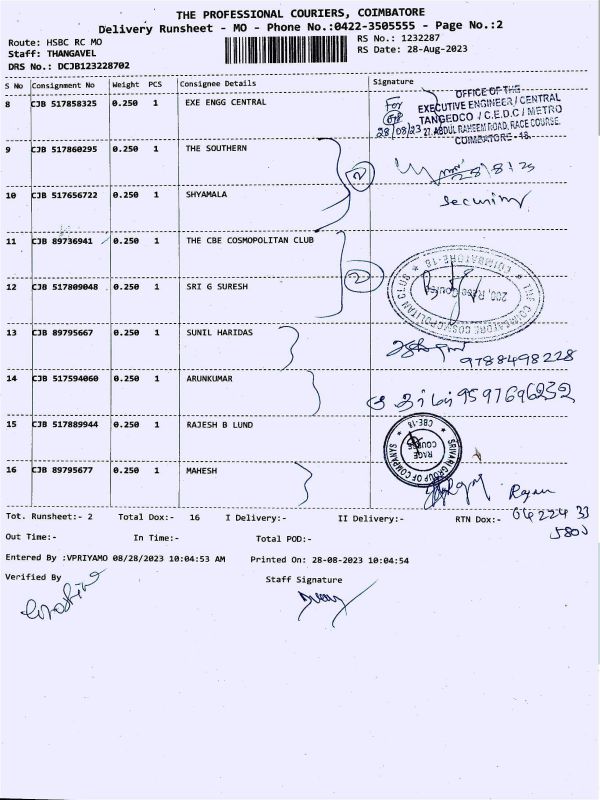 THE PROFESSIONAL COURIERS, COIMBATORE
Delivery Runsheet - MO - Phone No.:0422-3505555 - Page No.:2
Route: HSBC RC MO
RS No.: 1232287
Staff: THANGAVEL
RS Date: 28-Aug-2023
DRS No.: DCJB123228702
S No Consignment No Weight PCS Consignee Details Signature
8 CJB 517858325 0.250 1 EXE ENGG CENTRAL
For
28/08/23
OFFICE OF THE
EXECUTIVE ENGINEER / CENTRAL
TANGEDCO / C.E.D.C / METRO
27, ABDUL RAHEEM ROAD, RACE COURSE,
COIMBATORE - 18.
9 CJB 517860295 0.250 1 THE SOUTHERN
28/8/23
10 CJB 517656722 0.250 1 SHYAMALA
2
Security
11 CJB 89736941 0.250 1 THE CBE COSMOPOLITAN CLUB
12 CJB 517809048 0.250 1 SRI G SURESH
2
THE COIMBATORE COSMOPOLITAN CLUB
200, Race Course
COIMBATORE-18
13 CJB 89795667 0.250 1 SUNIL HARIDAS
9788498228
14 CJB 517594060 0.250 1 ARUNKUMAR
9597696232
15 CJB 517889944 0.250 1 RAJESH B LUND
SRIVARI GROUP OF COMPANY
RACE
COURSE
CBE-18
16 CJB 89795677 0.250 1 MAHESH
Rajan
04224 33
5800
Tot. Runsheet:- 2 Total Dox:- 16 I Delivery:- II Delivery:- RTN Dox:-
Out Time:- In Time:- Total POD:-
Entered By :VPRIYAMO 08/28/2023 10:04:53 AM Printed On: 28-08-2023 10:04:54
Verified By
Staff Signature